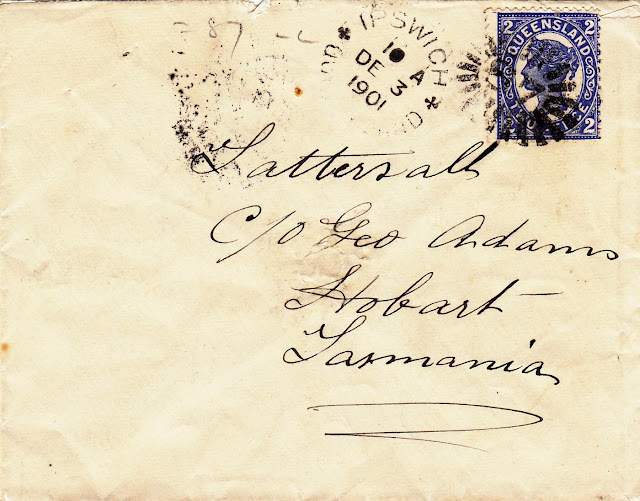 387
IPSWICH
10 A
DE 3
1901
2 QUEENSLAND 2
2 2
Tattersall
C/O Geo Adams
Hobart
Tasmania